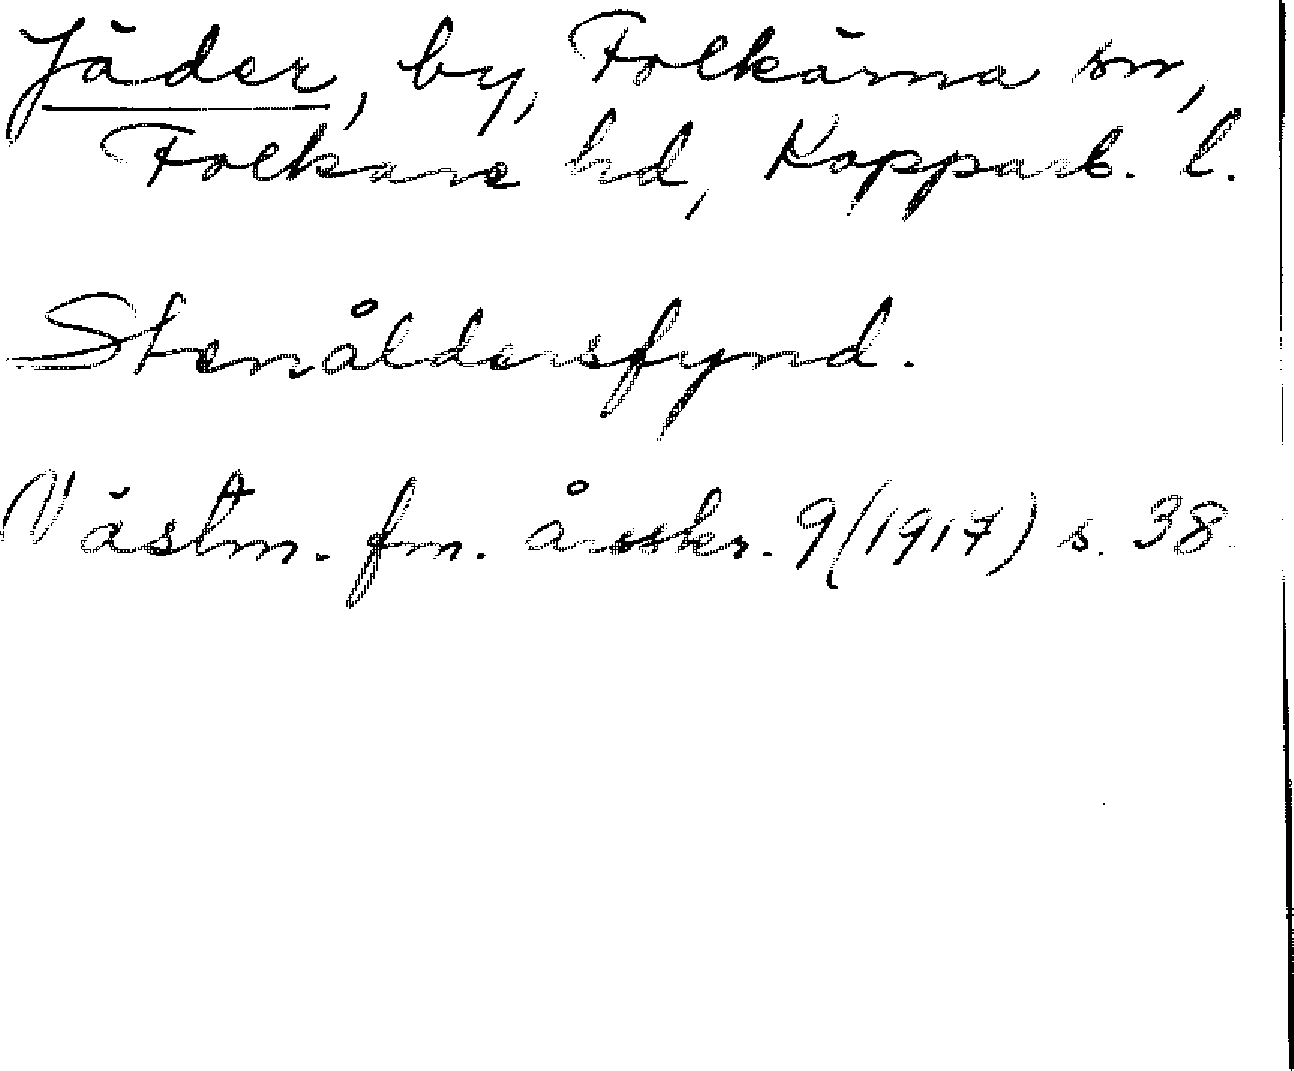 Jäder, by, Folkärna sn,
Folkare hd, Kopparb. l.
Stenåldersfynd.
Västm. fm. årsskr. 9 (1917) s. 38.